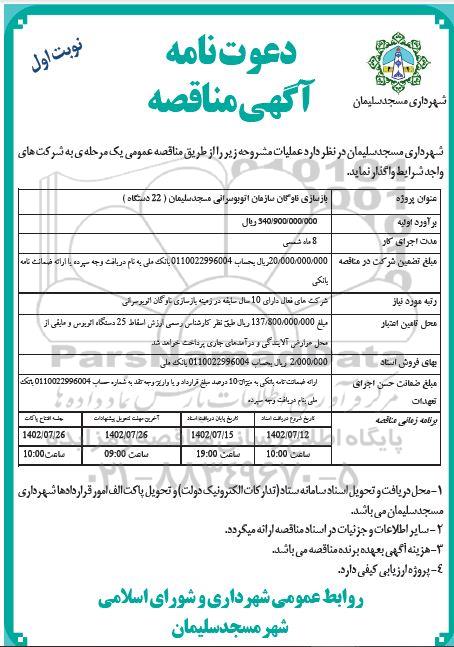 نوبت اول
دعوت‌نامه
آگهی مناقصه
شهرداری مسجدسلیمان
شهرداری مسجدسلیمان در نظر دارد عملیات مشروحه زیر را از طریق مناقصه عمومی یک مرحله‌ی به شرکت های
واجد شرایط واگذار نماید.
عنوان پروژه بازسازی ناوگان سازمان اتوبوسرانی مسجدسلیمان ( 22 دستگاه )
برآورد اولیه 340/900/000/000 ریال
مدت اجرای کار 8 ماه شمسی
مبلغ تضمین شرکت در مناقصه 20/000/000/000ریال بحساب 0110022996004 بانک ملی به نام دریافت وجه سپرده یا ارائه ضمانت نامه
بانکی
رتبه مورد نیاز شرکت های فعال دارای 10 سال سابقه در زمینه بازسازی ناوگان اتوبوسرانی
محل تامین اعتبار مبلغ 137/800/000/000 ریال طبق نظر کارشناس رسمی ارزش اسقاط 25 دستگاه اتوبوس و مابقی از
محل عوارض آلایندگی و درآمدهای جاری پرداخت خواهد شد.
بهای فروش اسناد 2/000/000 ریال بحساب 0110022996004 بانک ملی
مبلغ ضمانت حسن اجرای ارائه ضمانت نامه بانکی به میزان 10 درصد مبلغ قرارداد و یا واریز وجه نقد به شماره حساب 0110022996004 بانک
تعهدات ملی بنام دریافت وجه سپرده
برنامه زمانی مناقصه تاریخ شروع دریافت اسناد تاریخ پایان دریافت اسناد آخرین مهلت تحویل پیشنهادات جلسه افتتاح پاکات
1402/07/12 1402/07/15 1402/07/26 1402/07/26
ساعت 10:00 ساعت 19:00 ساعت 09:00 ساعت 10:00
۱-محل دریافت و تحویل اسناد سامانه ستاد (تدارکات الکترونیک دولت) و تحویل پاکت الف امور قراردادها شهرداری
مسجدسلیمان می باشد.
۲-سایر اطلاعات و جزئیات در اسناد مناقصه ارائه میگردد.
۳-هزینه آگهی بعهده برنده مناقصه می باشد.
۴-پروژه ارزیابی کیفی دارد.
روابط عمومی شهرداری و شورای اسلامی
شهر مسجدسلیمان